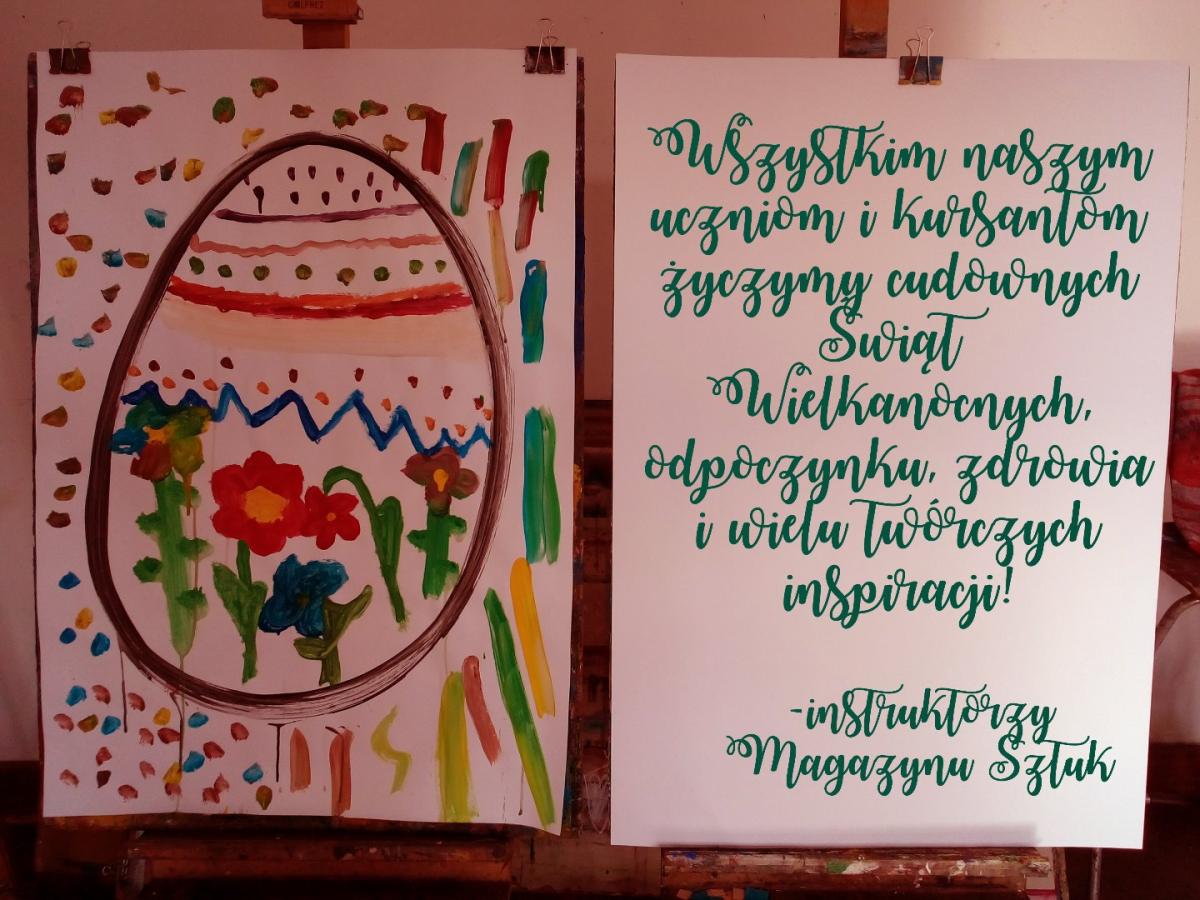 Wszystkim naszym
uczniom i kursantom
życzymy cudownych
Świąt
Wielkanocnych,
odpoczynku, zdrowia
i wielu twórczych
inspiracji!
-instruktorzy
Magazynu Sztuk